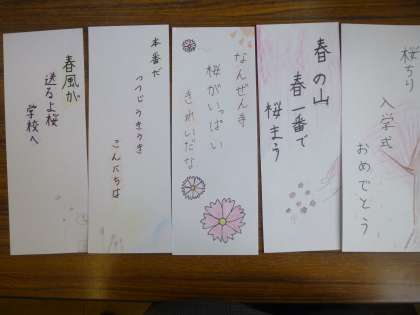 桜ちり
入学式
おめでとう
春の山
春一番で
桜まう
なんぜん寺
桜がいっぱい
きれいだな
本番だ
つつじうきうき
こんにちは
春風が
送るよ桜
学校へ